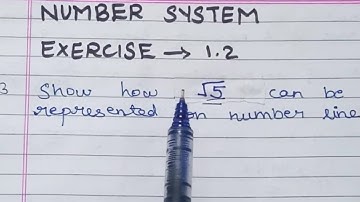 NUMBER SYSTEM
EXERCISE → 1.2
3 Show how √5 can be
represented on number line